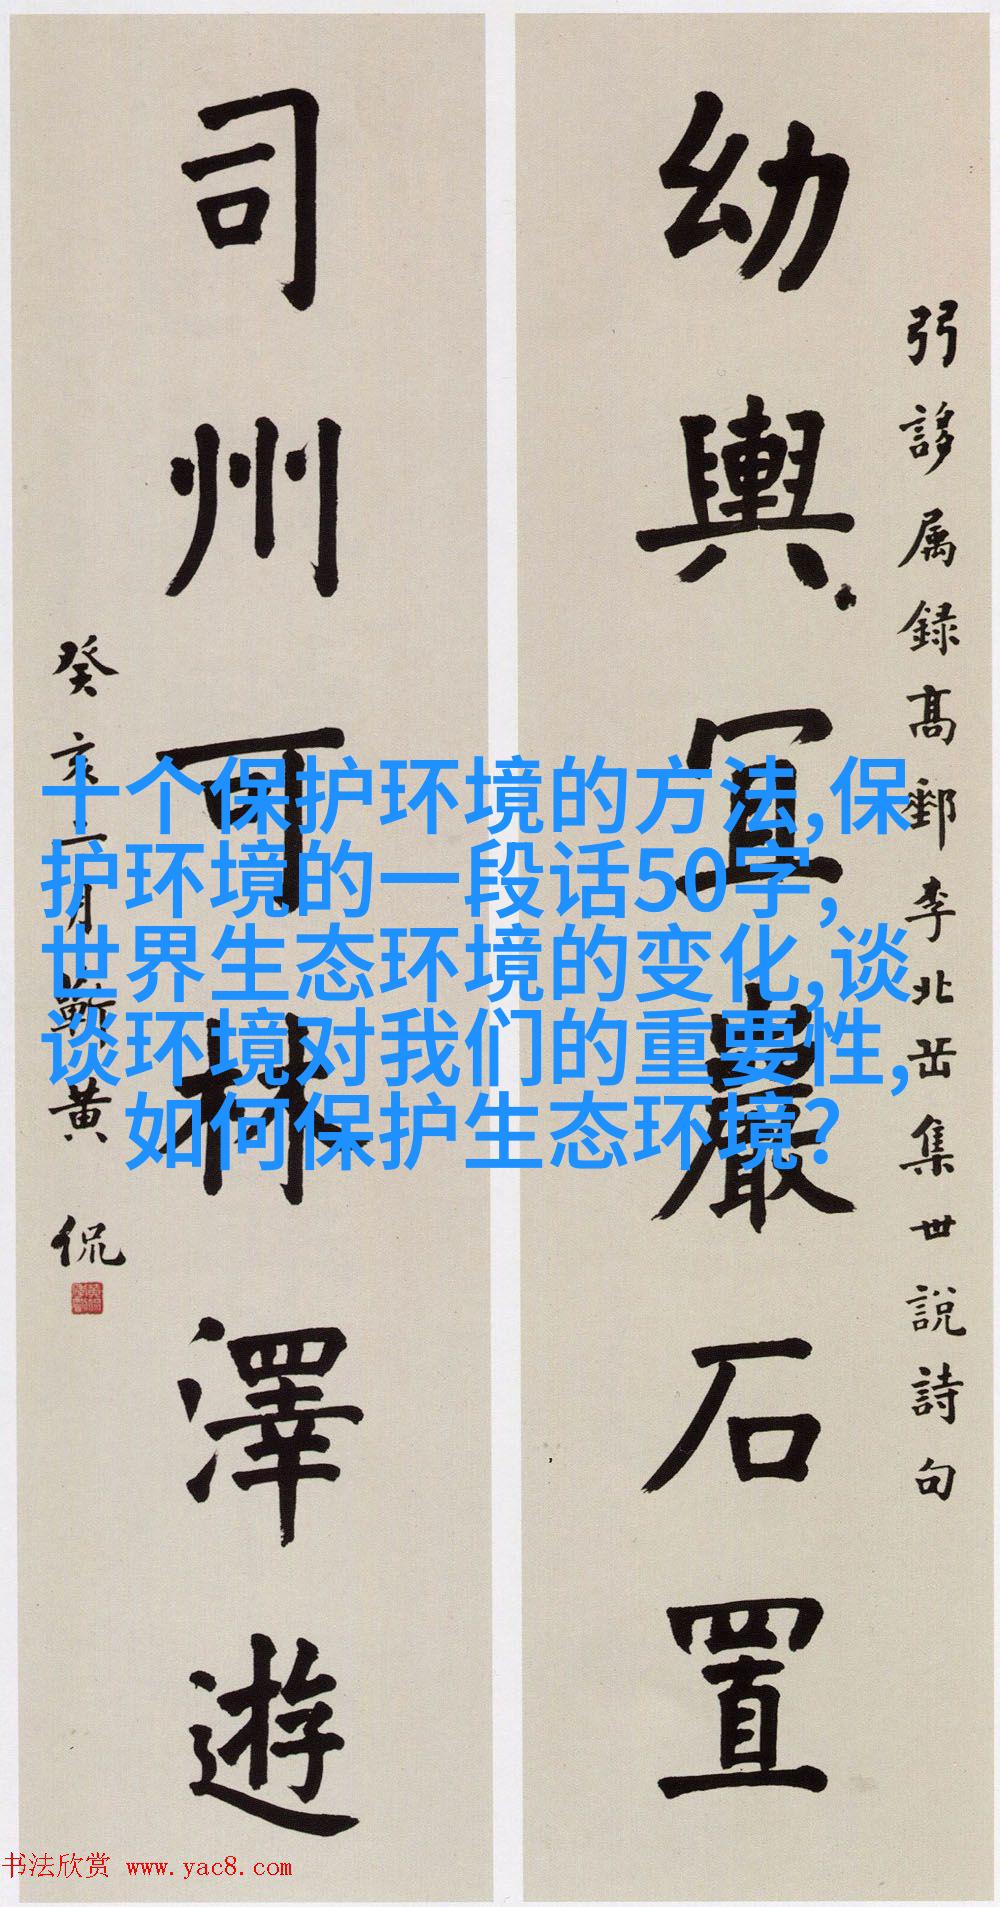 弜誃属録高郵李北岳集世說詩句
幼輿宜巖石置
司州可林澤遊
癸亥二月蘄黃侃
十个保护环境的方法,保
护环境的一段话50字,
世界生态环境的变化,谈
谈环境对我们的重要性,
如何保护生态环境?
书法欣赏 www.yac8.com